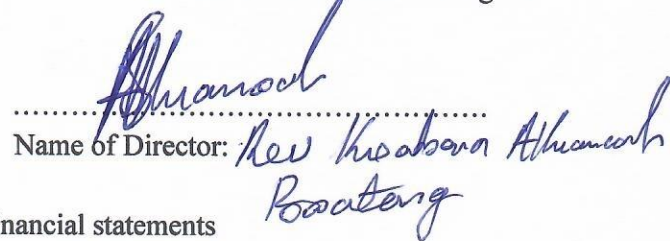 Name of Director: Rev Kwabena Ahwansah
Boateng
nancial statements